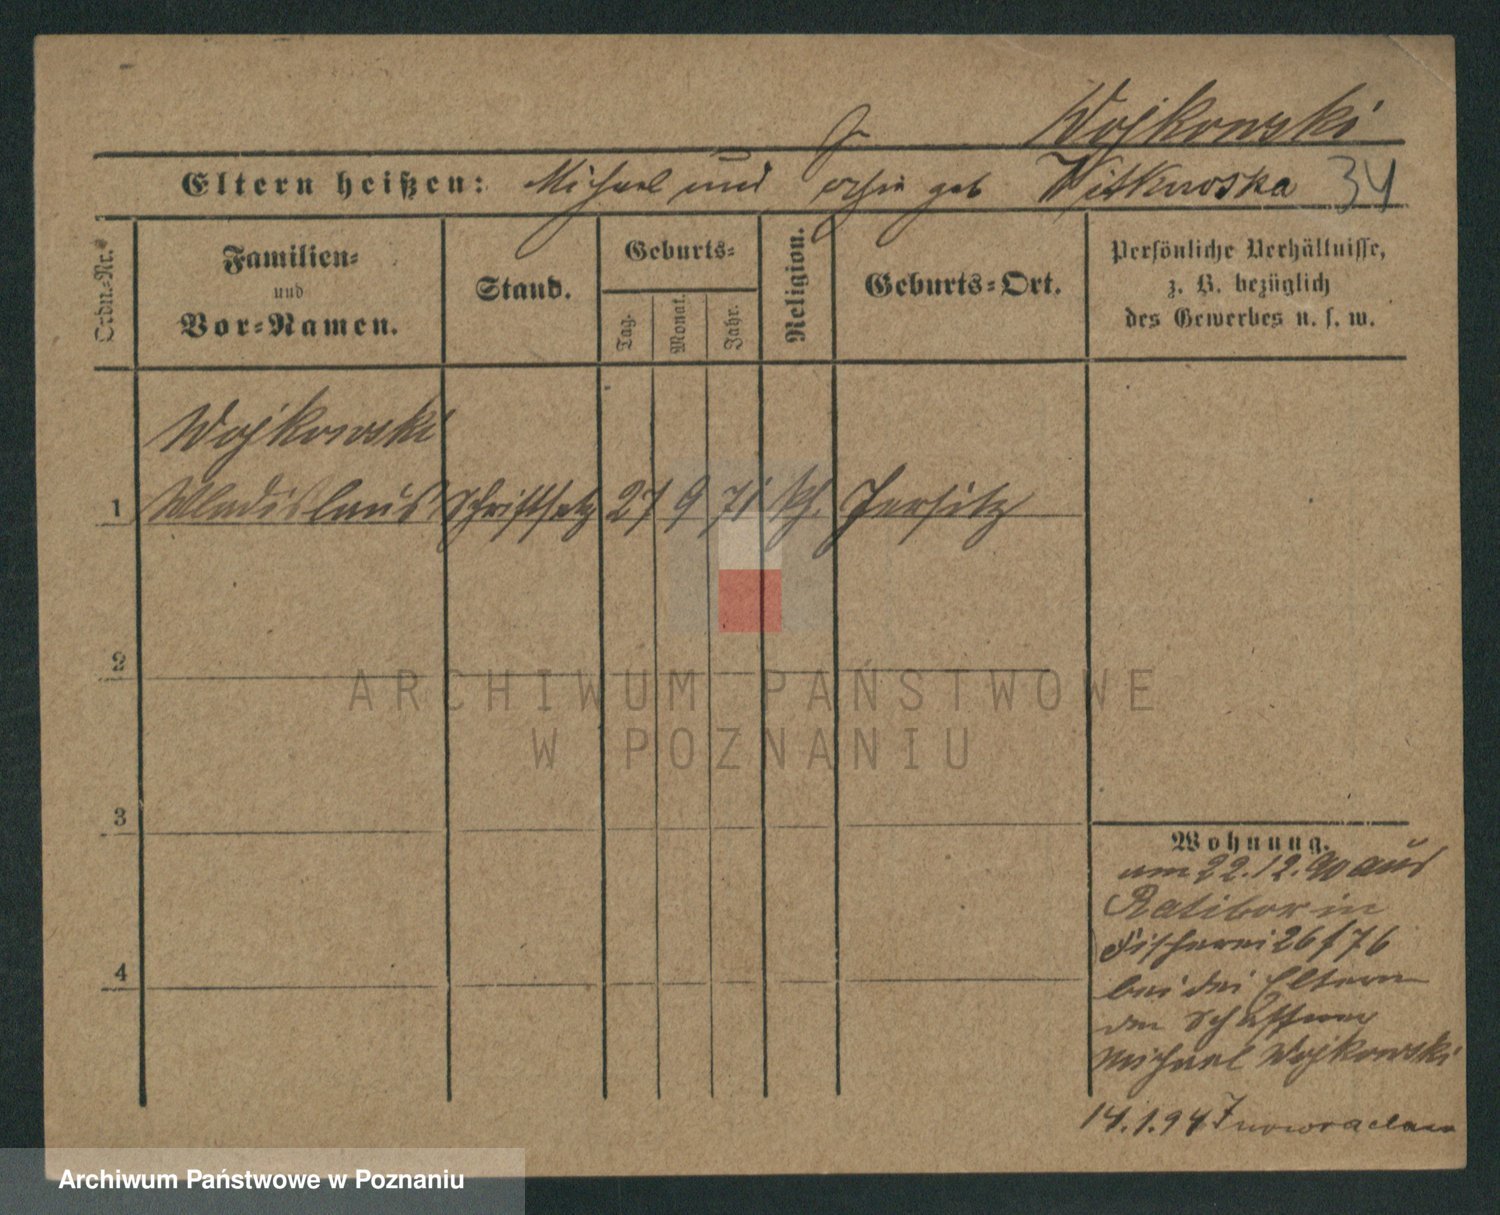 Wojkowski
Eltern heißen: Michael und geb Witkowska 34
Ordn.-Nr.
Familien-
und
Vor-Namen.
Stand.
Geburts-
Tag.
Monat.
Jahr.
Religion.
Geburts-Ort.
Persönliche Verhältnisse,
z. B. bezüglich
des Gewerbes u. s. w.
Wojkowski
1 Wladislaus Schriftsetz 27 9 71 kh. Jersitz
2
3
4
Wohnung.
am 22.12.90 aus
Ratibor in
Fischerei 26/76
bei den Eltern
den Schaffner
Michael Wojkowski
14.1.94 Inowraclaw
ARCHIWUM PAŃSTWOWE
W POZNANIU
Archiwum Państwowe w Poznaniu